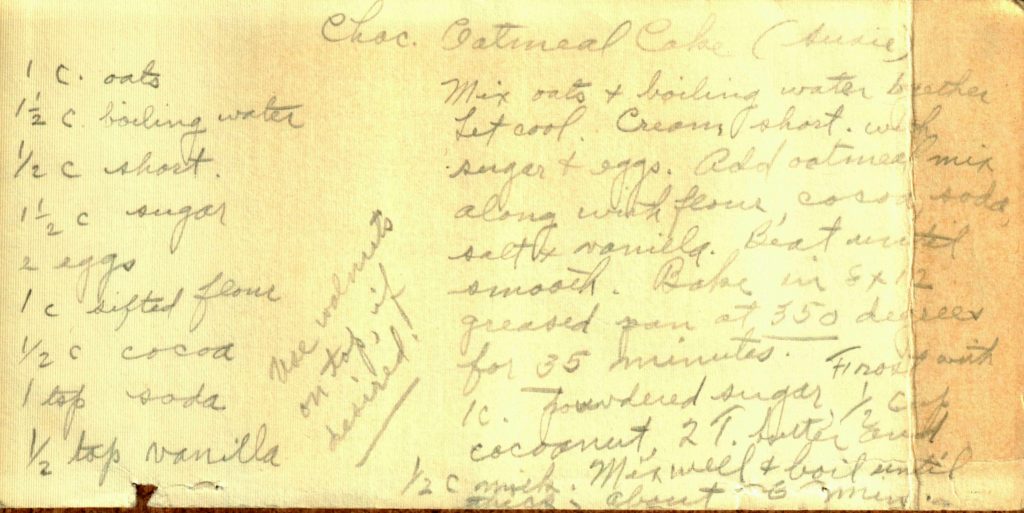 Choc. Oatmeal Cake (Susie)
1 c. oats
1 1/2 c boiling water
1/2 c short.
1 1/2 c sugar
2 eggs
1 c sifted flour
1/2 c cocoa
1 tsp soda
1/2 tsp vanilla
Use walnuts
on top, if
desired!
Mix oats & boiling water together
Let cool. Cream short. with
sugar & eggs. Add oatmeal mix
along with flour, cocoa, soda,
salt & vanilla. Beat until
smooth. Bake in 8x12
greased pan at 350 degrees
for 35 minutes. Frost with
1c. powdered sugar, 1/2 cup
cocoanut, 2 T. butter and
1/2 c milk. Mix well & boil until
thick. about min.